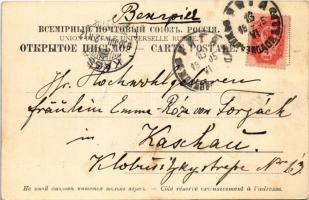 Венгрiя
ВСЕМIРНЫЙ ПОЧТОВЫЙ СОЮЗЪ. РОССIЯ.
UNION POSTALE UNIVERSELLE RUSSIE
ОТКРЫТОЕ ПИСЬМО. — CARTE POSTALE.
Ihr. Hochwohlgeboren
fräulein Emma Róza von Forgách
in
Kaschau.
Klobusitzkystrasse No 63
На этой сторонѣ пишется только адресъ. — Côté réservé exclusivement à l'adresse.